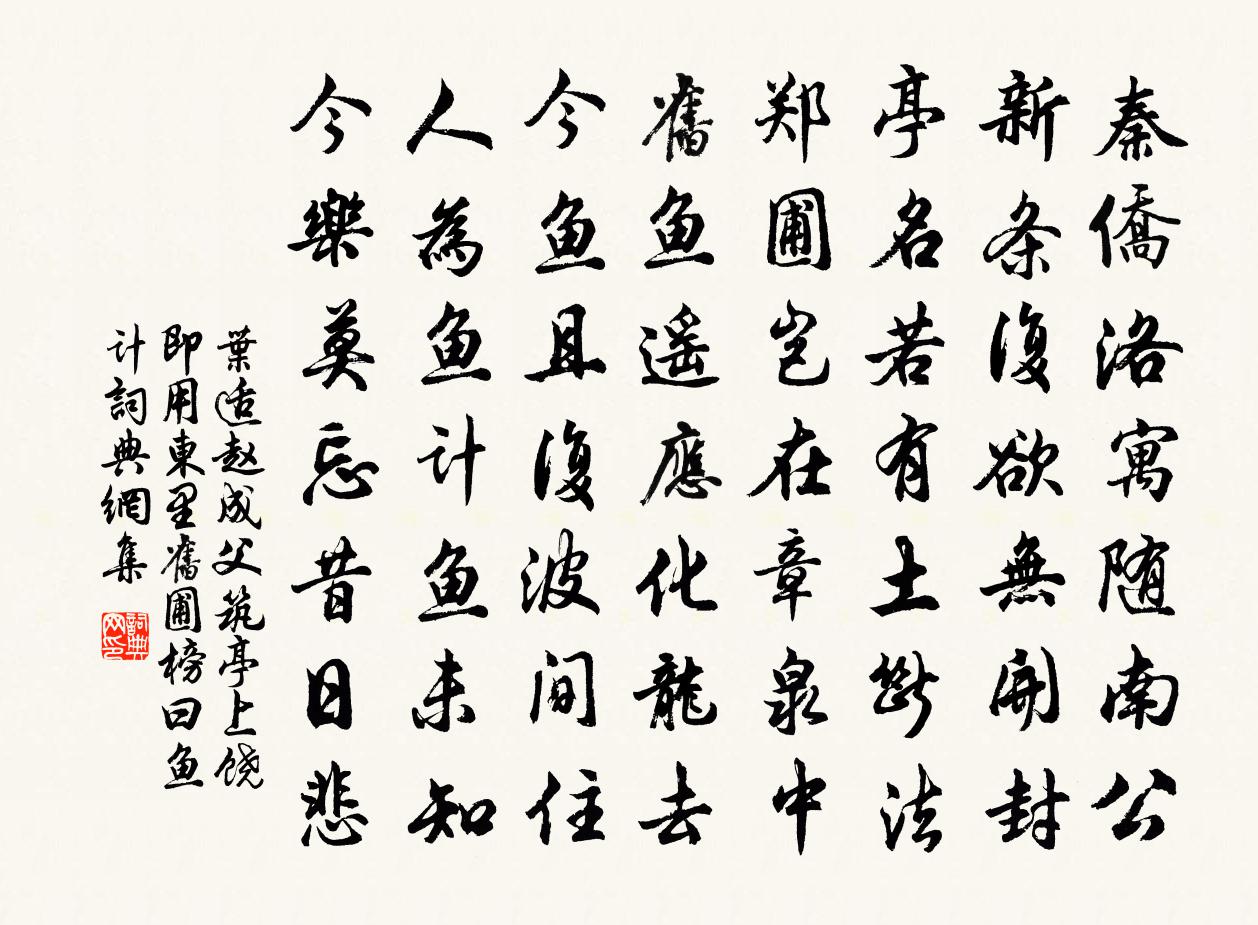 秦僑洛寓随南公
新条復欲無開封
亭名若有土斷法
郑圃岂在章泉中
舊鱼遥應化龍去
今鱼且復波间住
人為鱼计鱼未知
今樂莫忘昔日悲
葉适赵成父筑亭上饶
即用東里舊圃榜曰鱼
计詞典網集
詞典网印